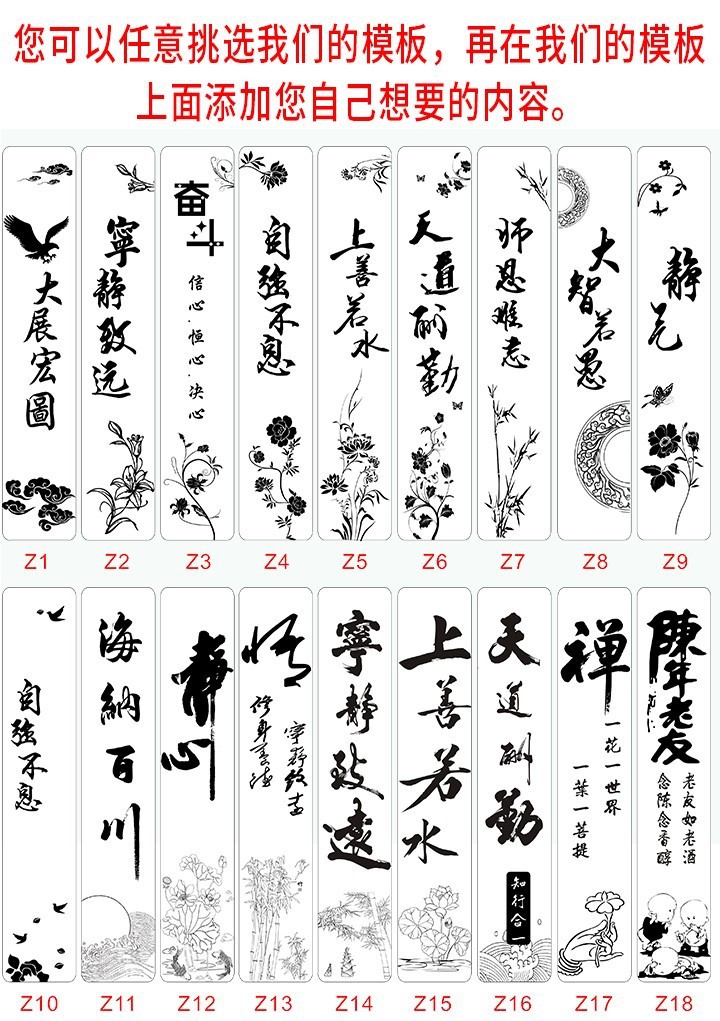 您可以任意挑选我们的模板，再在我们的模板
上面添加您自己想要的内容。
大展宏圖
寧静致远
奋斗
信心.恒心.决心
自强不息
上善若水
天道酬勤
师恩难忘
大智若愚
静气
Z1
Z2
Z3
Z4
Z5
Z6
Z7
Z8
Z9
自强不息
海納百川
静心
悟
寧静致遠
修身养德
寧静致遠
上善若水
天道酬勤
知行合一
禅
一花一世界
一葉一菩提
陳年老友
老友如老酒
念陈念香醇
Z10
Z11
Z12
Z13
Z14
Z15
Z16
Z17
Z18